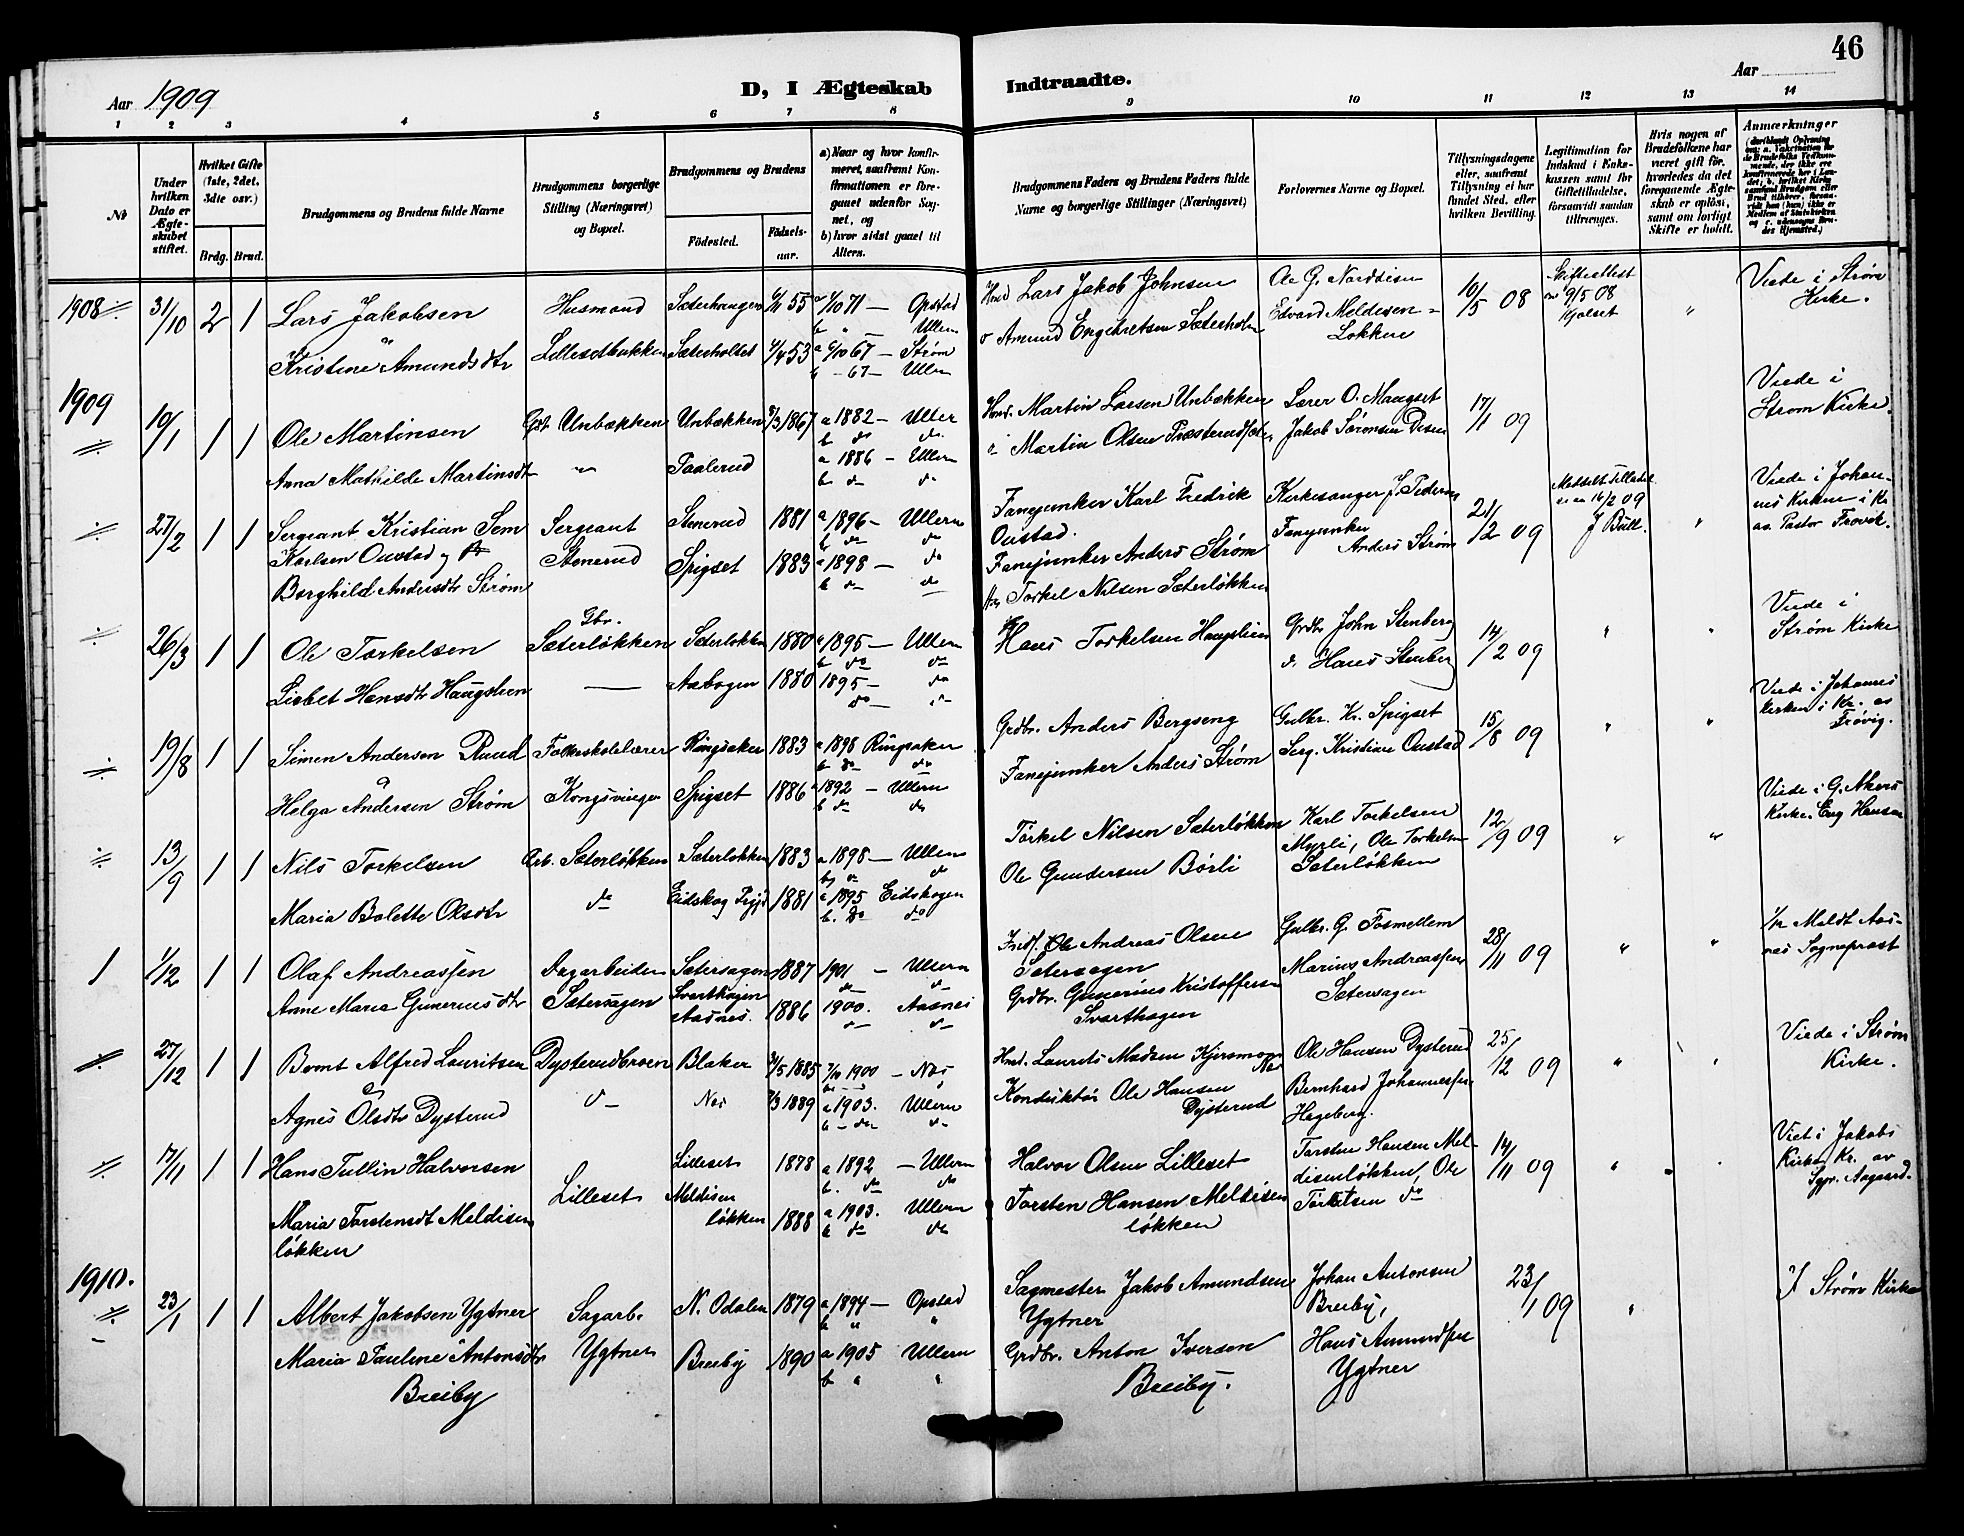 46
Aar 1909
D, I Ægteskab Indtraadte.
Aar
1 2 3 4 5 6 7 8 9 10 11 12 13 14
No
Under hvilken Dato er Ægteskabet stiftet.
Hvilket Gifte (1ste, 2det, 3die osv.)
Brdg. Brud.
Brudgommens og Brudens fulde Navne
Brudgommens borgerlige Stilling (Næringsvei) og Bopæl.
Brudgommens og Brudens
Fødested.
Fødselsaar.
a) Naar og hvor konfirmeret, saafremt Konfirmationen er foregaaet udenfor Sognet, og
b) hvor sidst gaaet til Alters.
Brudgommens Faders og Brudens Faders fulde Navne og borgerlige Stillinger (Næringsvei)
Forlovernes Navne og Bopæl.
Tillysningsdagene eller, saafremt Tillysning ei har fundet Sted, efter hvilken Bevilling.
Legitimation for Indskud i Enkekassen samt for Giftetilladelse, forsaavidt saadan tiltrænges.
Hvis nogen af Brudefolkene har været gift før, hvorledes da det foregaaende Ægteskab er opløst, samt om lovligt Skifte er holdt.
Anmærkninger
1908 31/10 2 1 Lars Jakobsen Husmand Sæterhaugen 55 71 – Opstad
Ullern
Kristine Amundsdtr Lillesetbakken Sæterholtet 53 67 – Strøm
67 – Ullern
Lars Jakob Johnsen
Amund Engebretsen Sæterholm
Ole G. Norddisen
Edvard Meldisen
Løkken
10/5 08
Gifteattest
9/5 08
Viede i Strøm
Kirke.
1909
10/1 1 1 Ole Martinsen Unbækken Unbækken 1867 a 1882 – Ullern
b do do
Anna Mathilde Martinsdtr Taalerud a 1886 – Ullern
b do do
Martin Larsen Unbækken
Martin Olsen
Lærer O. Maugset
Jakob Sørensen Disen
17/1 09
Viede i
Strøm Kirke.
27/2 1 1 Sergeant Kristian Sem Sergeant Stenerud 1881 a 1896 – Ullern
Karlsen Oustad og Stenerud b do do
Borghild Andersdtr Strøm Spigset 1883 a 1898 – do
b do do
Fanejunker Karl Fredrik
Oustad.
Fanejunker Anders Strøm
Kirkesanger J. Pedersen
Fanejunker
Anders Strøm
21/2 09
16/2 09
J Bull.
Viede i Johannes
Kirken i Kr.
av Pastor Frøvik.
26/3 1 1 Ole Torkelsen Gbr. Sæterløkken Sæterløkken 1880 a 1895 – Ullern
b do do
Lisbet Hansdtr Haugstien Aabogen 1880 1895 – do
do
Torkel Nilsen Sæterløkken
Hans Torkelsen Haugstien
Grdbr John Stenberg
Hans Stenberg
14/2 09
Viede i
Strøm Kirke
19/8 1 1 Simen Andersen Ruud Folkeskolelærer Ringsaker 1883 a 1898 Ringsaker
b do do
Helga Andersen Strøm Kongsvinger Spigset 1886 1892 – Ullern
b do do
Grdbr. Anders Bergseng
Fanejunker Anders Strøm
Gulbr. Kr. Spigset
Serg. Kristian Oustad
15/8 09
Viede i Johannes
kirken i Kr. av
Frøvig.
13/9 1 1 Nils Torkelsen Arb. Sæterløkken Sæterløkken 1883 a 1898 – Ullern
b do do
Maria Bolette Olsdtr do Eidskog 1881 a 1895 Eidskogen
b. do do
Torkel Nilsen Sæterløkken
Ole Gundersen Børli
Karl Torkelsen
Myrli, Ole Torkelsen
Sæterløkken
12/9 09
Viede i G. Akers
Kirke. Hansen
1 1/12 1 1 Olaf Andreassen Dagarbeider Sætersagen 1887 1901 – Ullern
do do
Anne Maria Gunneriusdtr Sætersagen Svarthagen
Aasnes. 1886 1900. Aasnes
do do
Ole Andreas Olsen
Sætersagen
Grdbr. Gunerius Kristoffersen
Svarthagen
Gulbr. G. Fosmellem
Marius Andreassen
Sætersagen
28/11 09
Meldt Aasnes
Sogneprest
27/12 1 1 Bernt Alfred Lauritsen Dysterudbroen Blaker 1885 1900 – Nes
Agnes Olsdtr Dysterud do Nes 1889 a 1903. Ullern
b – do do
Laurits Madsen
Konduktør Ole Hansen
Dysterud
Ole Hansen Dysterud
Bernhard Johannessen
Hegeberg.
25/12 09
Viede i Strøm
Kirke.
17/11 1 1 Hans Tullin Halvorsen Lilleset Lilleset 1878 a 1892 – Ullern
b. do do
Maria Torstensdt Meldisen
løkken Meldisen
løkken 1888 a 1903. Ullern
b do do
Halvor Olsen Lilleset
Torsten Hansen Meldisen
løkken
Torsten Hansen Meldisenløkken,
Ole Torkelsen do
14/11 09
Viet i Jakobs
Kirke Kr. av
Spr. Aagaard.
1910.
23/1 1 1 Albert Jakobsen Ygtner Sagarb. N. Odalen 1879 a 1894 – Opstad
b " "
Maria Pauline Antonsdtr Ygtner Breiby 1890 a 1905 Ullern
Breiby b " "
Sagmester Jakob Amundsen
Ygtner
Grdbr. Anton Iverson
Breiby.
Johan Antonsen
Breiby,
Hans Amundsen
Ygtner
23/1 09
I Strøm Kirke